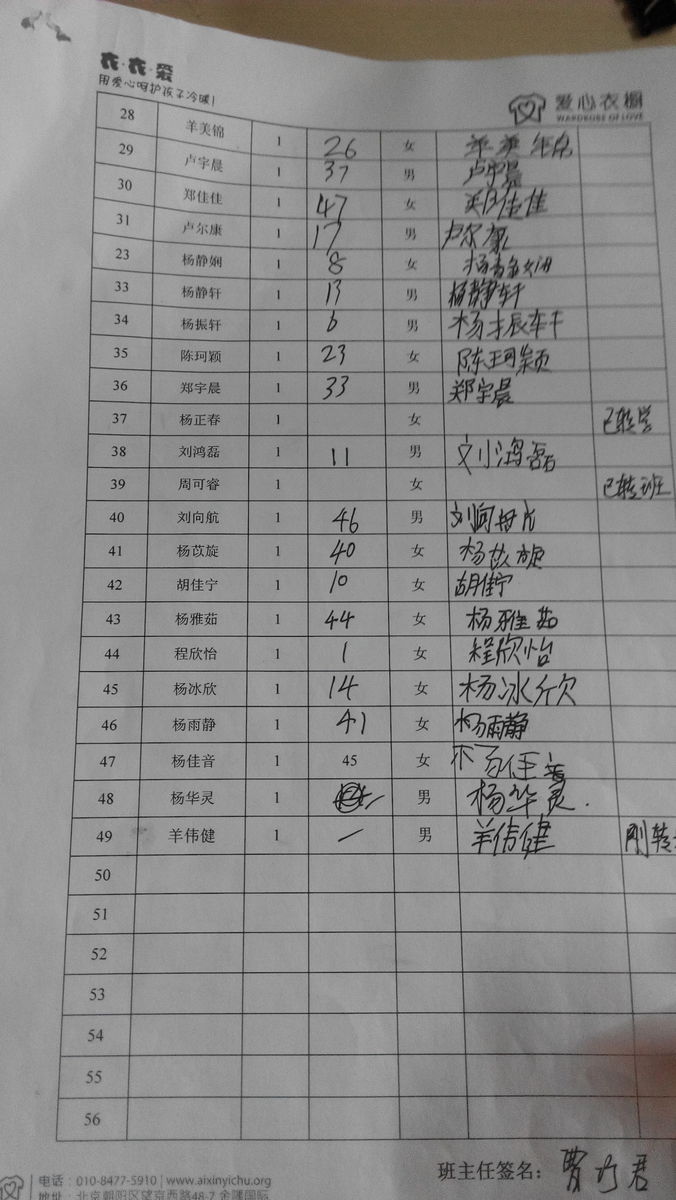 衣·衣·爱
用爱心呵护孩子冷暖！
爱心衣橱
WARDROBE OF LOVE
28 羊美锦 1 26 女 羊美
29 卢宇晨 1 37 男 卢宇晨
30 郑佳佳 1 47 女 郑佳佳
31 卢尔康 1 17 男 卢尔康
23 杨静娴 1 8 女 杨静娴
33 杨静轩 1 13 男 杨静轩
34 杨振轩 1 6 男 杨振轩
35 陈珂颖 1 23 女 陈珂颖
36 郑宇晨 1 33 男 郑宇晨
37 杨正春 1 女 已转学
38 刘鸿磊 1 11 男 刘鸿磊
39 周可睿 1 女 已转班
40 刘向航 1 46 男 刘向航
41 杨苡旋 1 40 女 杨苡旋
42 胡佳宁 1 10 女 胡佳宁
43 杨雅茹 1 44 女 杨雅茹
44 程欣怡 1 1 女 程欣怡
45 杨冰欣 1 14 女 杨冰欣
46 杨雨静 1 41 女 杨雨静
47 杨佳音 1 45 女 杨佳音
48 杨华灵 1 男 杨华灵.
49 羊伟健 1 — 男 羊伟健 刚转
50
51
52
53
54
55
56
班主任签名：
电话：010-8477-5910 | www.aixinyichu.org
地址：北京朝阳区望京西路48-7 金隅国际